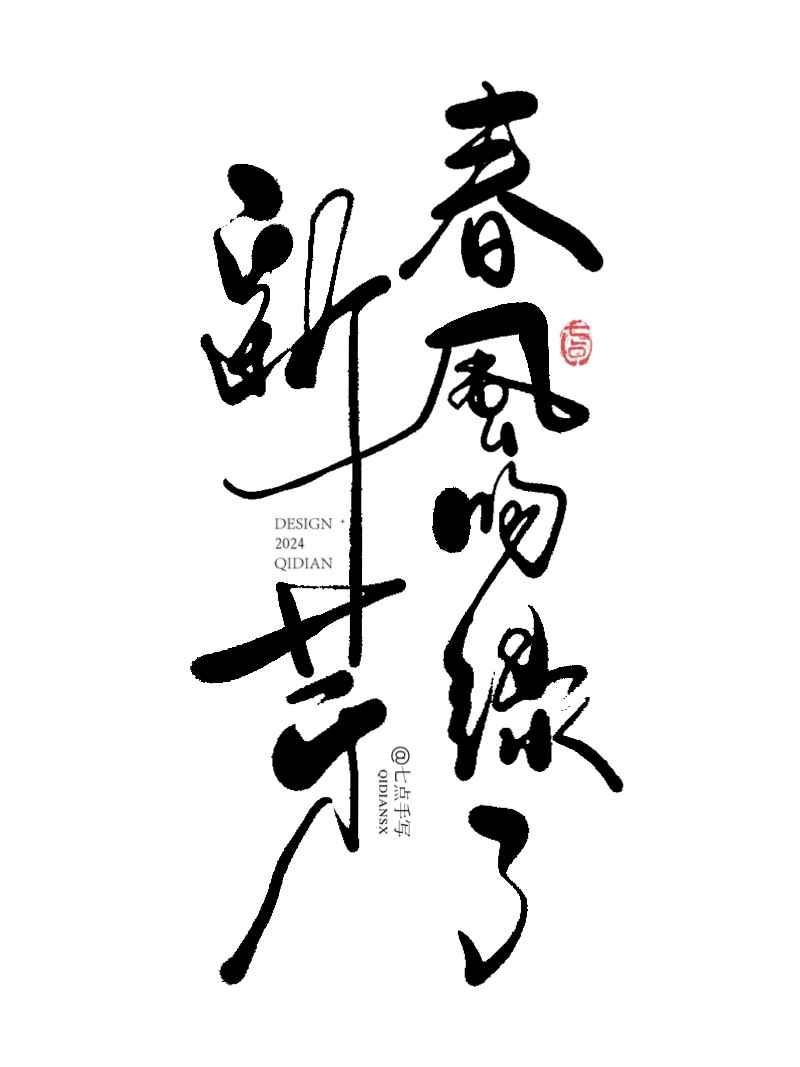 春風吻綠了
新芽
七点
DESIGN
2024
QIDIAN
@七点手写
QIDIANSX